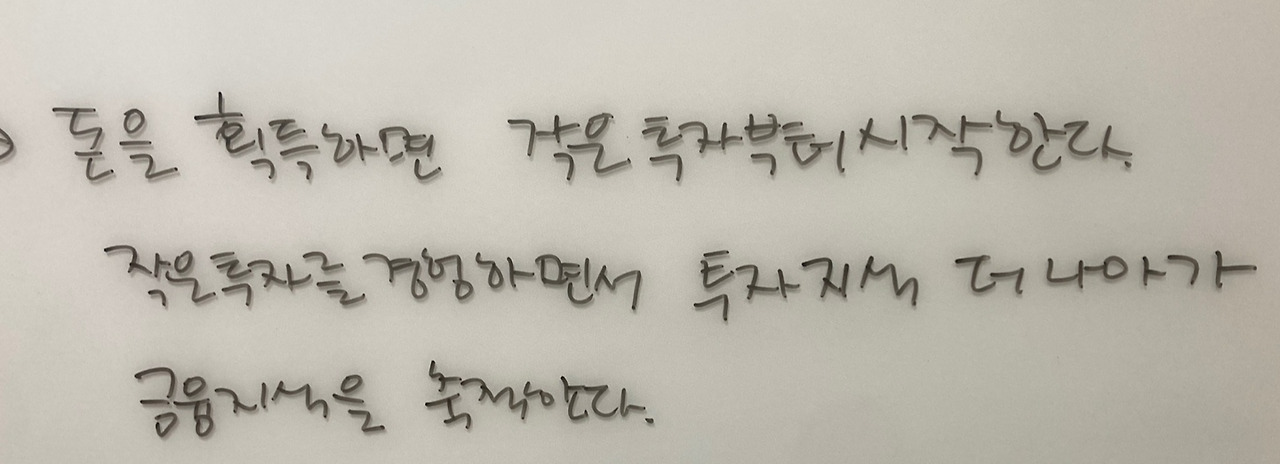 돈을 획득하면 작은투자부터시작한다.
작은투자를경험하면서 투자지식 더나아가
금융지식을 축적한다.